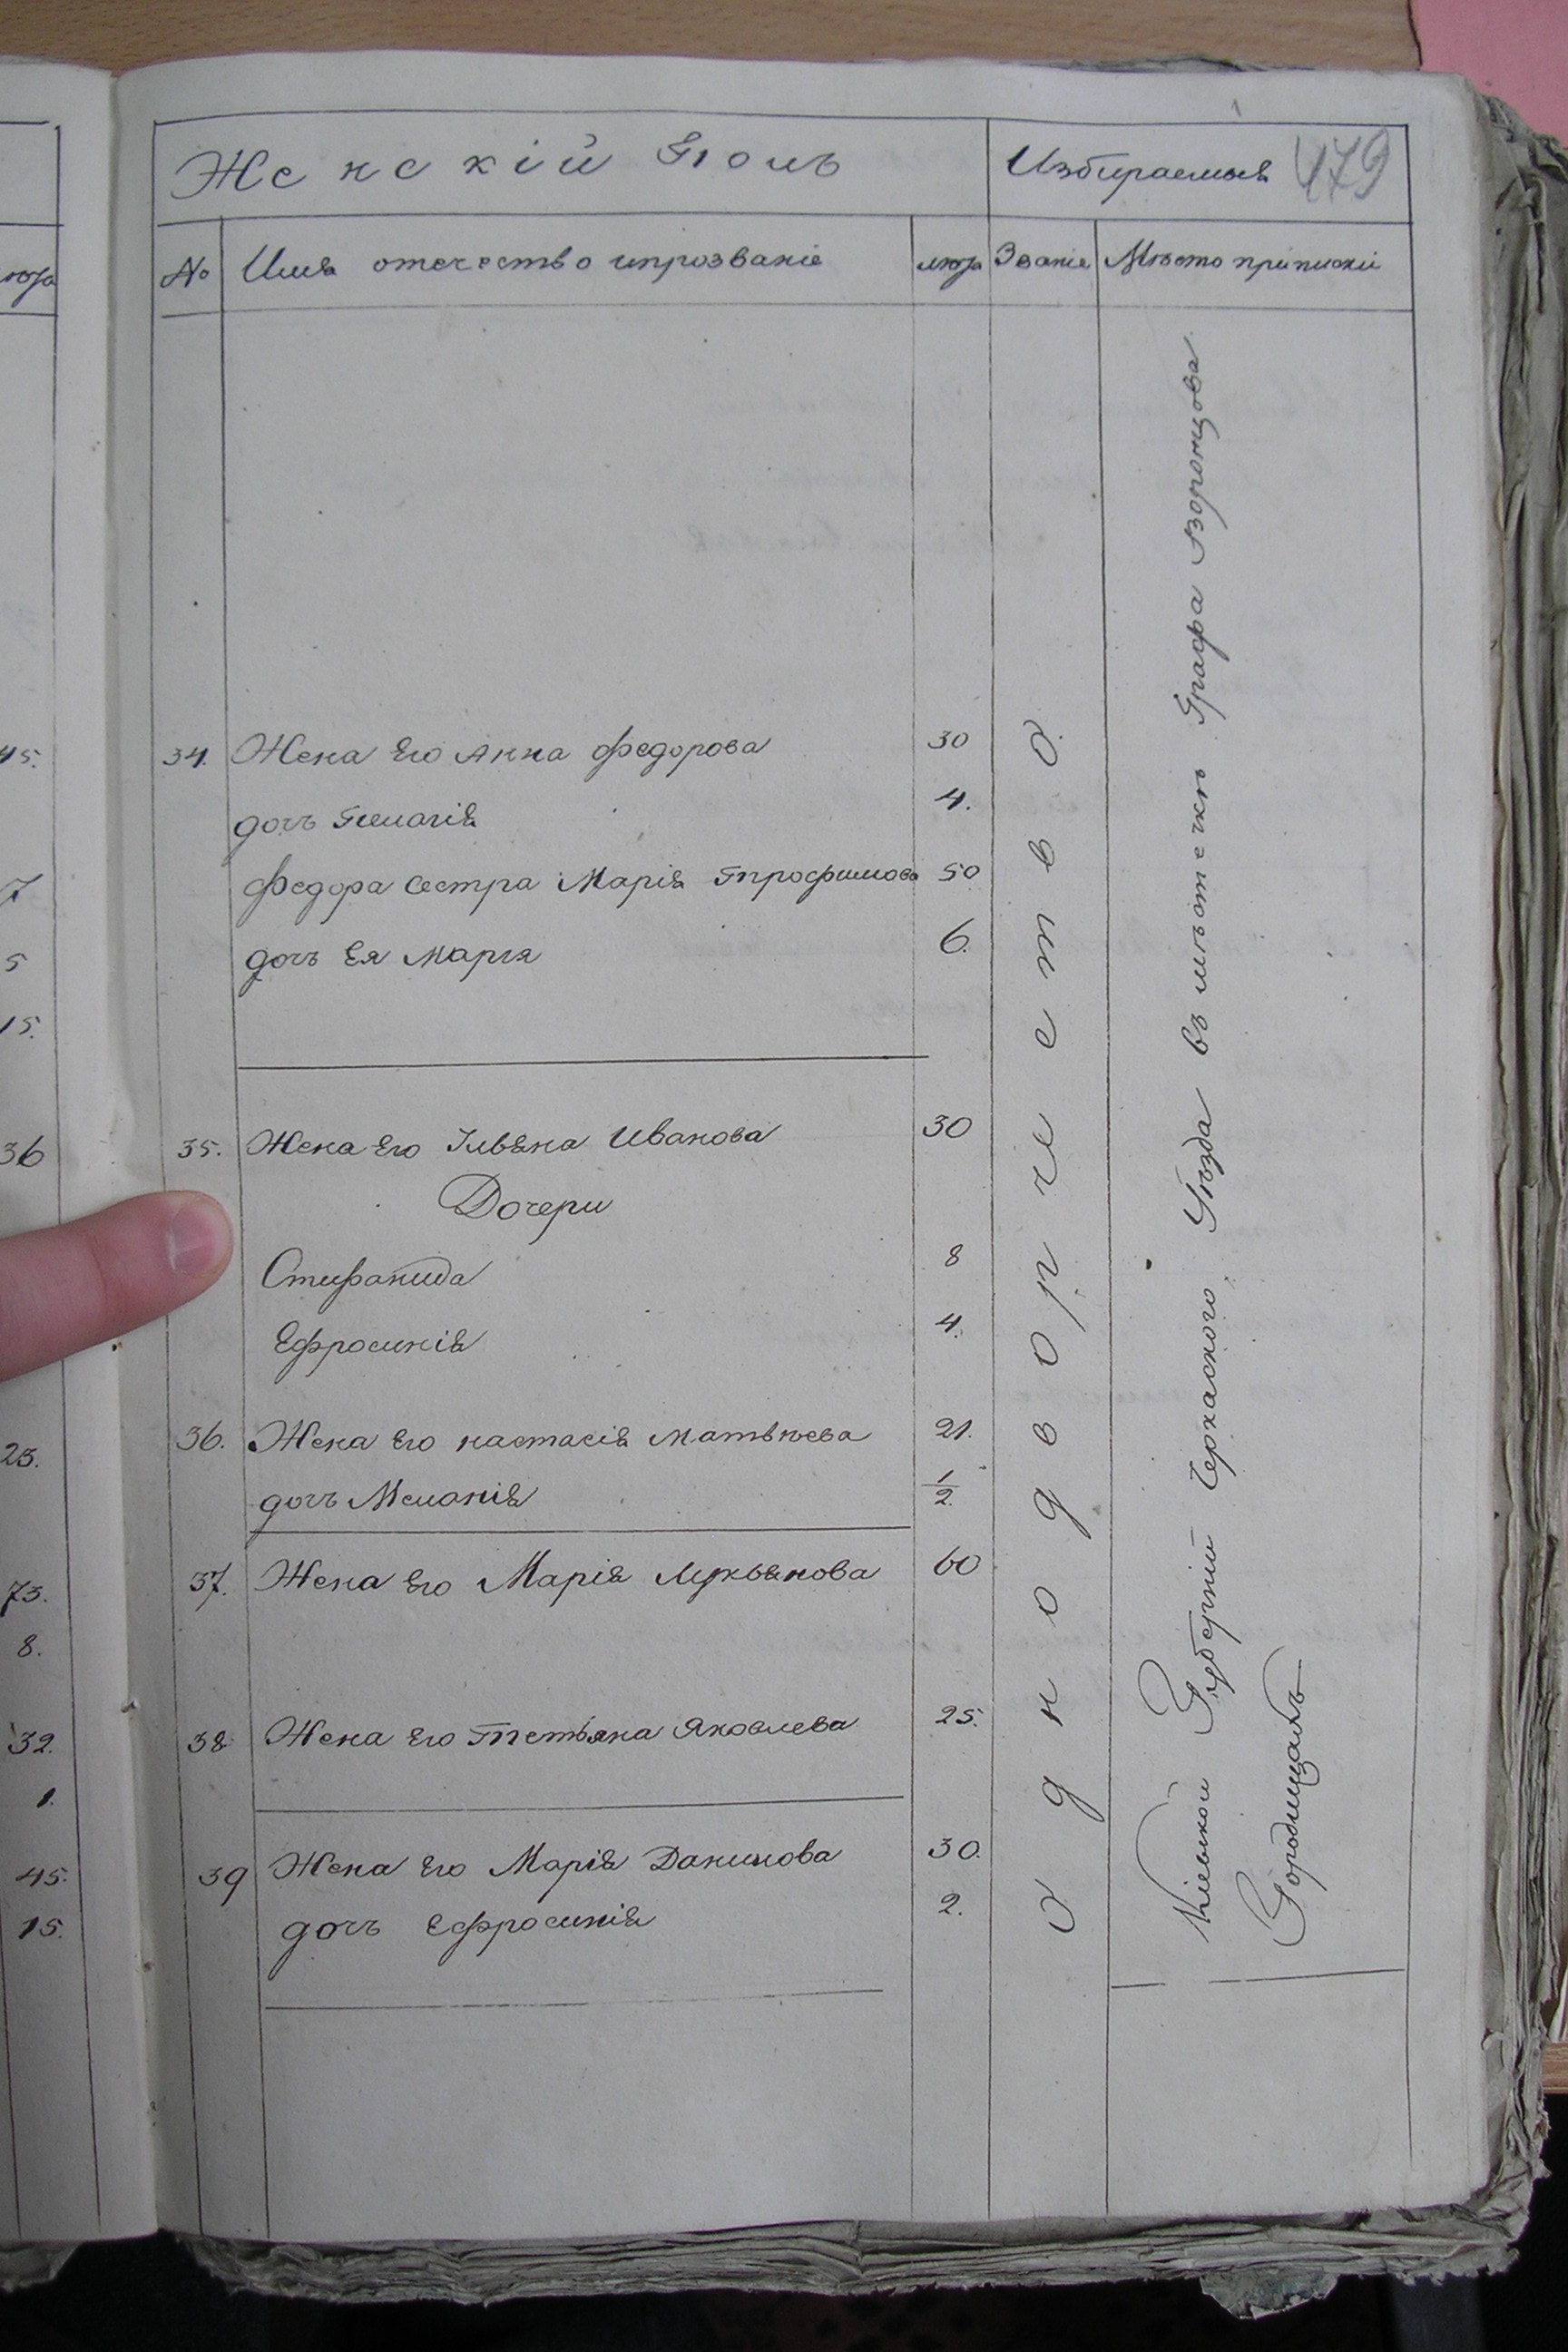 Женскій Полъ
Избираемыя
479
№
Имя отечество ипрозваніе
лѣта
Званіе
Мѣсто приписки
34. Жена Его Анна Федорова 30
дочь Пелагія 4.
Федора Сестра Марія Трофимова 50
дочь Ея Марія 6.
35. Жена Его Ульяна Иванова 30
Дочери
Стифанида 8
Ефросинія 4.
36. Жена Его настасія Матвѣева 21.
дочь Меланія 1/2.
37. Жена Его Марія Лукьянова 60
38 Жена Его Тетьяна Яковлева 25.
39 Жена Его Марія Данилова 30.
дочь Ефросинія 2.
Однодворчество.
Кіевской Губерніи Черкаского Уѣзда въ мѣстечкѣ Графа Воронцова
45.
7
5
15.
36
23.
73.
8.
32.
1.
45.
15.